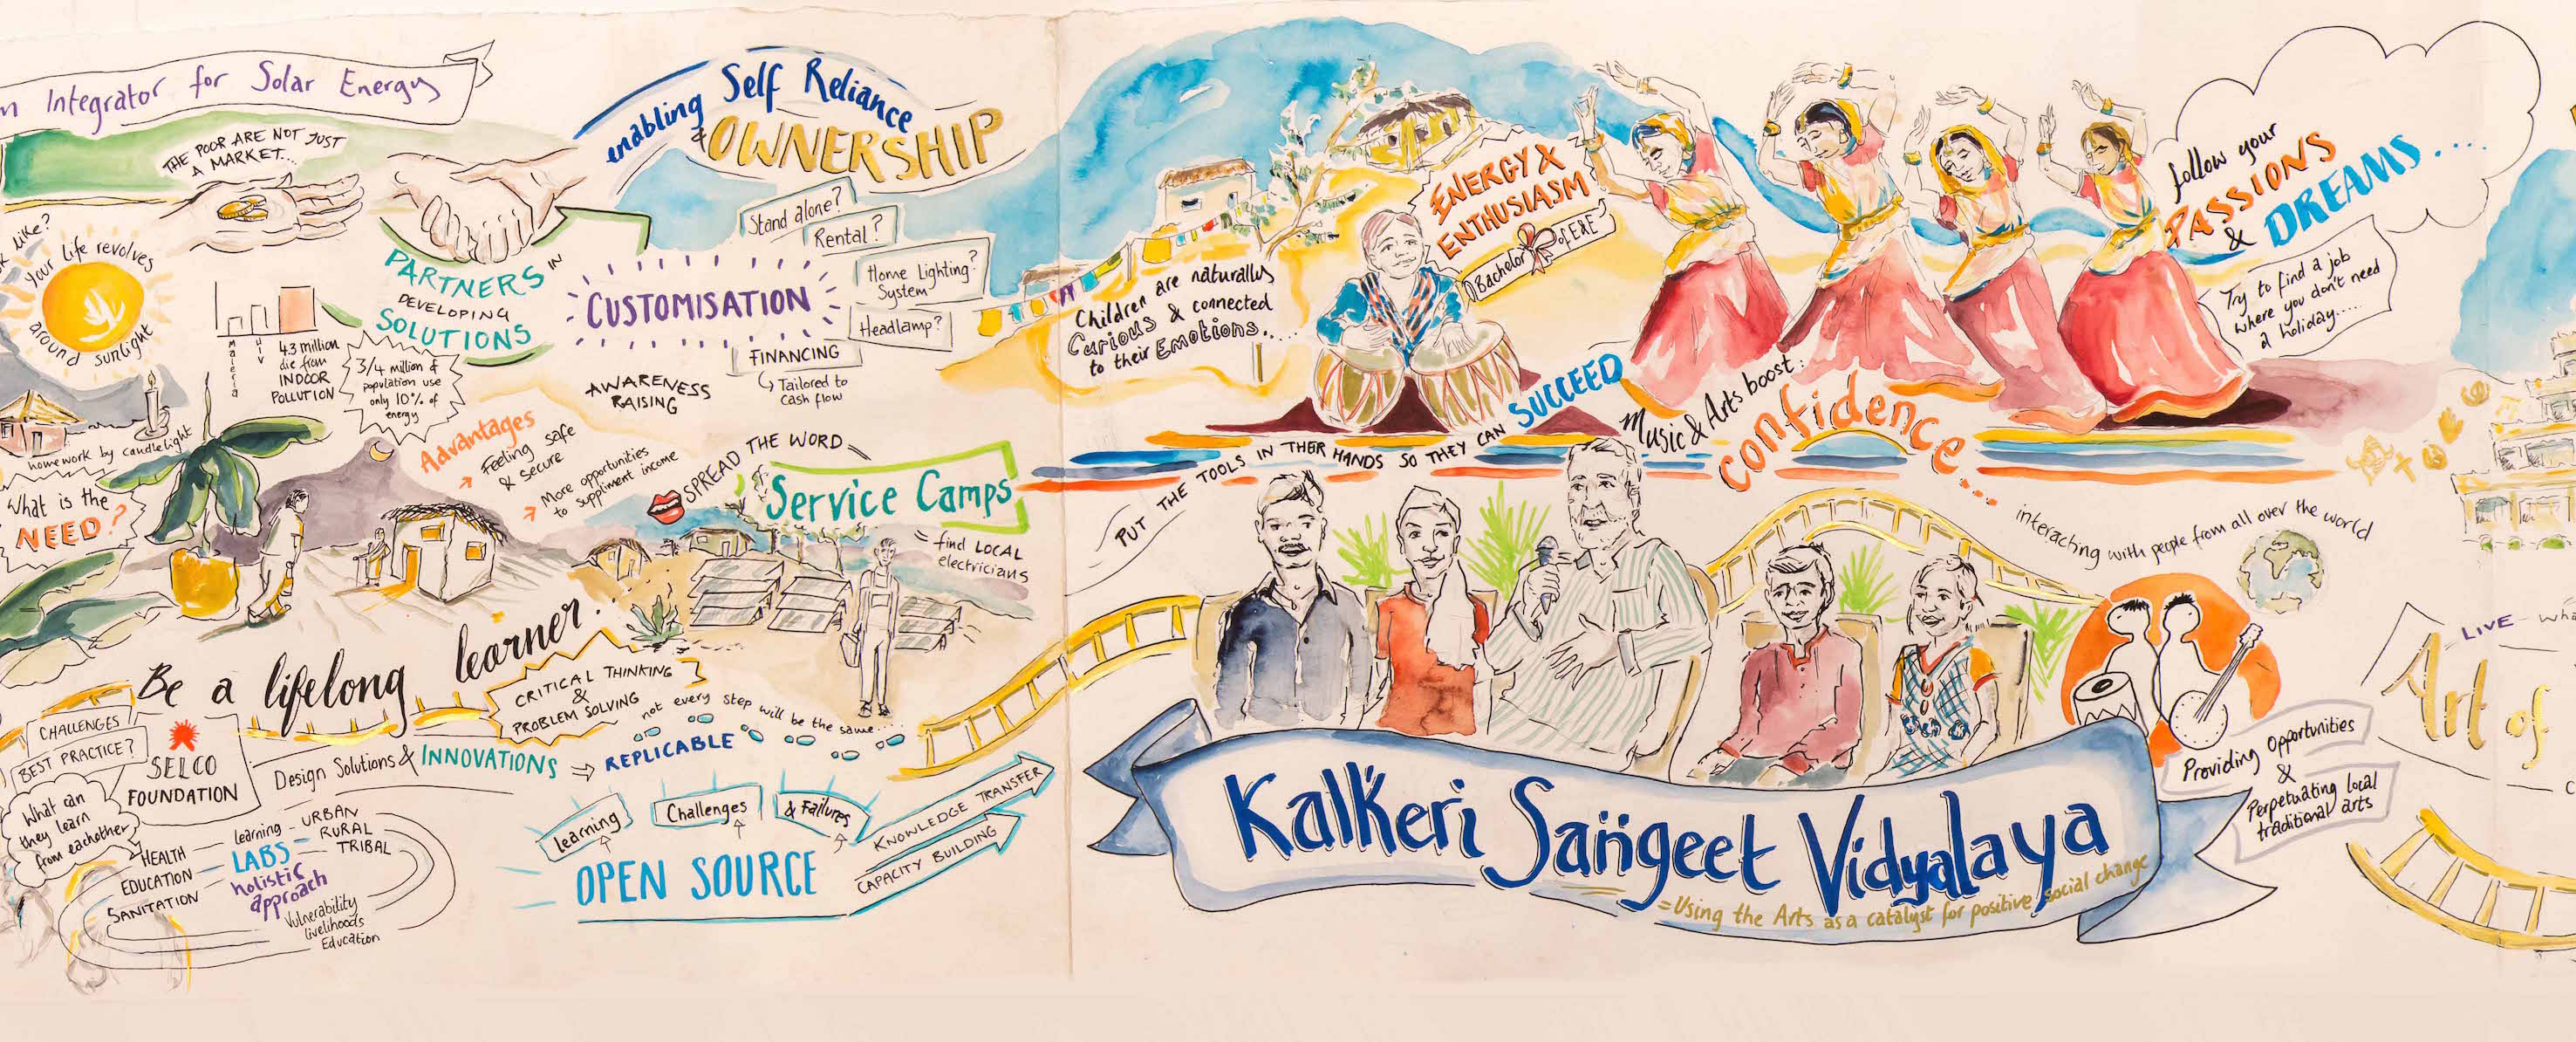 n Integrator for Solar Energy
THE POOR ARE NOT JUST
A MARKET....
like?
Your life revolves
around sunlight
Malaria
HIV
4.3 million
die from
INDOOR
POLLUTION
3/4 million of
population use
only 10% of
energy
PARTNERS IN
DEVELOPING
SOLUTIONS
homework by candlelight
What is the
NEED?
Advantages
Feeling safe
& secure
More opportunities
to suppliment income
enabling Self Reliance
& OWNERSHIP
Stand alone?
Rental?
Home Lighting?
System
Headlamp?
CUSTOMISATION
FINANCING
Tailored to
Cash flow
AWARENESS
RAISING
SPREAD THE WORD
Service Camps
= find LOCAL
electricians
Be a lifelong learner...
CRITICAL THINKING
&
PROBLEM SOLVING
not every step will be the same....
CHALLENGES
BEST PRACTICE?
SELCO
FOUNDATION
Design Solutions & INNOVATIONS
REPLICABLE
What can
they learn
from eachother
HEALTH
EDUCATION
SANITATION
learning
LABS
holistic
approach
URBAN
RURAL
TRIBAL
Vulnerability
livelihoods
Education
Learning
Challenges
& Failures
OPEN SOURCE
KNOWLEDGE TRANSFER
CAPACITY BUILDING
Children are naturally
Curious & connected
to their Emotions.....
ENERGY &
ENTHUSIASM
Bachelor of E&E
follow your
PASSIONS
& DREAMS....
Try to find a job
where you don't need
a holiday.....
PUT THE TOOLS IN THER HANDS SO THEY CAN SUCCEED
Music & Arts boost:
confidence...
interacting with people from all over the world
Kalkeri Sangeet Vidyalaya
= Using the Arts as a catalyst for positive social change
Providing Opportunities
&
Perpetuating local
traditional arts
LIVE
Art of